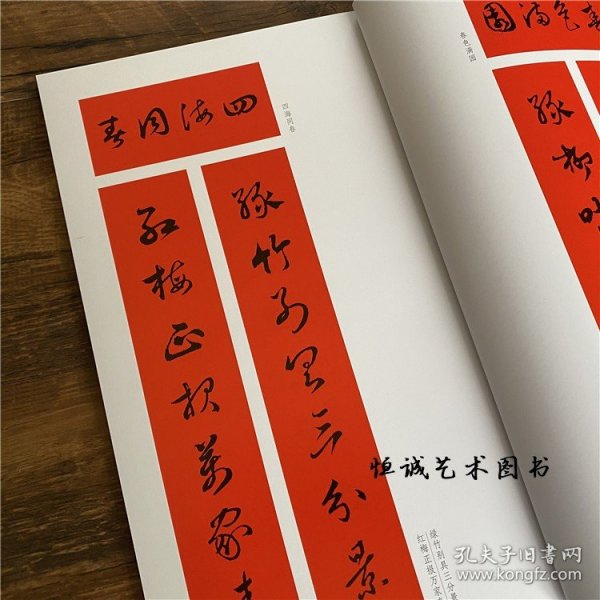 四海同春
四海同春
绿竹别具三分景
红梅正报万家春
绿竹别具三分景
红梅正报万家
春色满园
春色满园
绿柳
恒诚艺术图书
孔夫子旧书网
www.kongfz.com